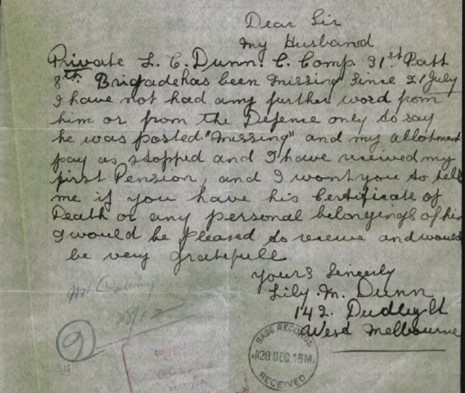 Dear Sir
My Husband
Private L. C. Dunn. C. Comp 31st Batt
8th Brigade has been missing since 21 July
I have not had any further word from
him or from the Defence only to say
he was posted "missing" and my allotment
pay as stopped and I have received my
first Pension, and I wont you to tell
me if you have his Certificate of
Death or any personal belongings of his
I would be pleased to receive and would
be very gratefull
yours Sincerly
Lily. M. Dunn
142. Dudley St
West Melbourne
28/12
9
BASE RECORDS
28 DEC 16
RECEIVED